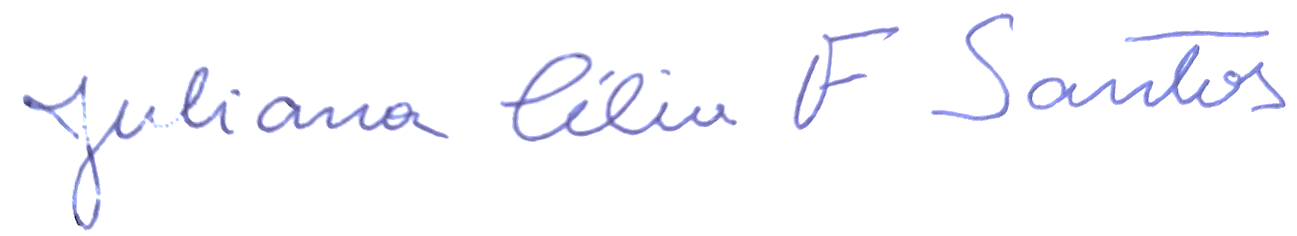 Juliana Célia F Santos